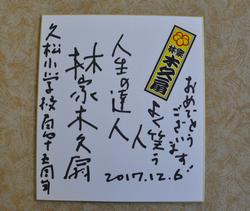 林家
木久扇
おめでとう
ございます!
よく笑う
人
人生の達人
林家木久扇
2017.12.6
久松小学校百四十五周年